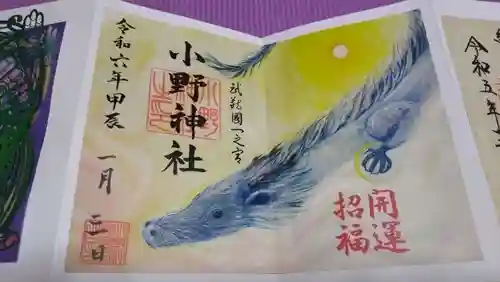 開運
招福
武蔵國一之宮
小野神社
令和六年甲辰
一月三日
令和五年